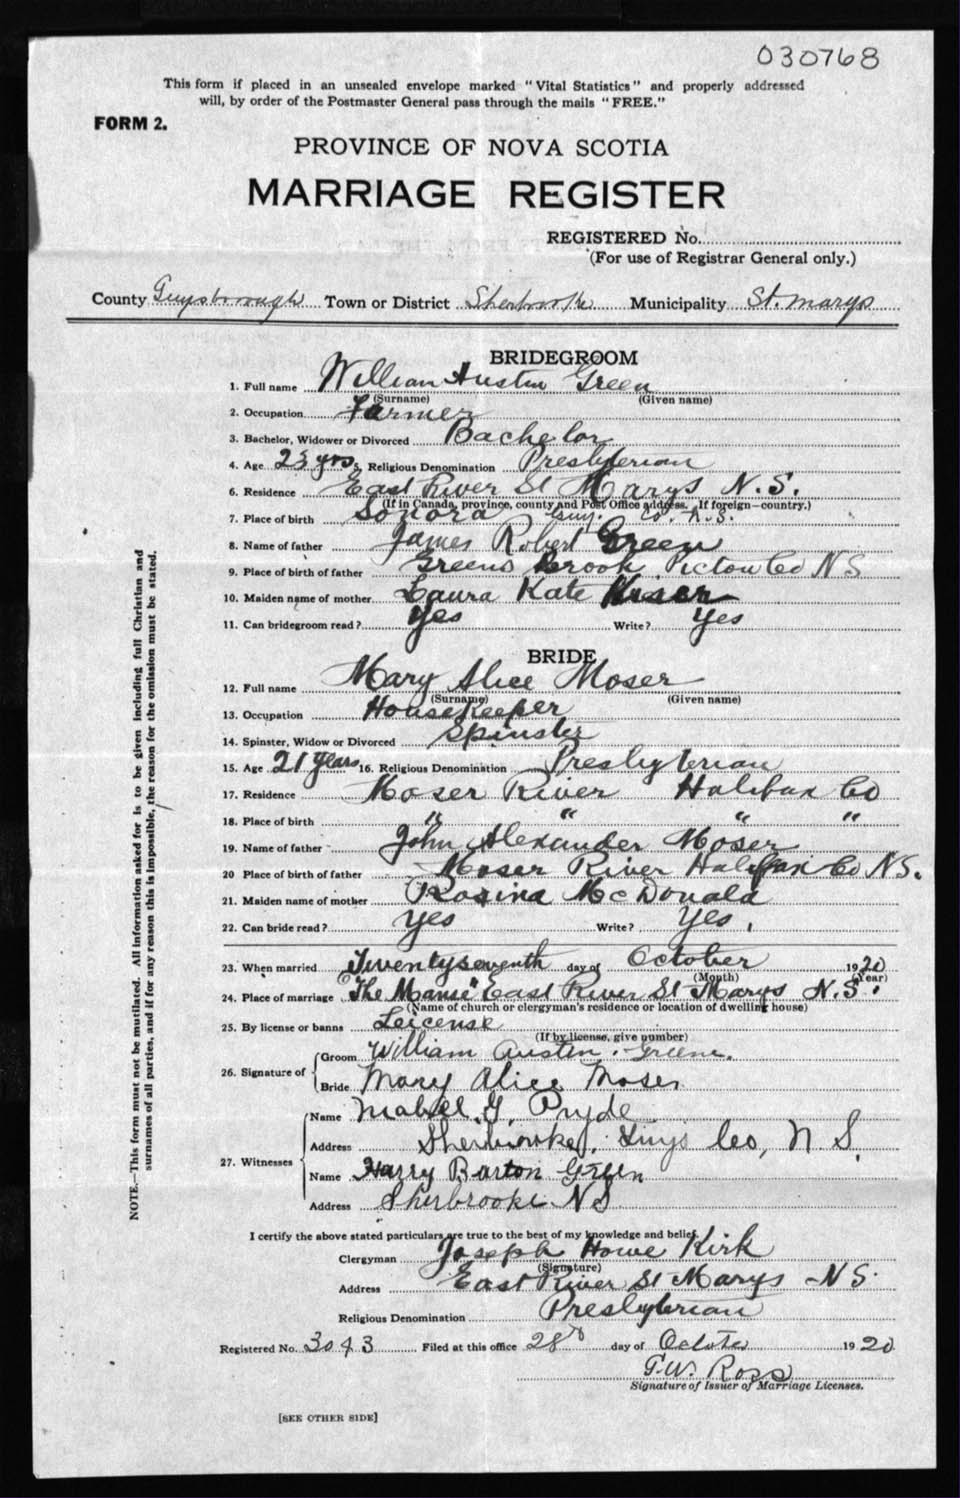 030768
This form if placed in an unsealed envelope marked "Vital Statistics" and properly addressed
will, by order of the Postmaster General pass through the mails "FREE."
FORM 2.
PROVINCE OF NOVA SCOTIA
MARRIAGE REGISTER
REGISTERED No.
(For use of Registrar General only.)
County Guysborough Town or District Sherbrooke Municipality St. Marys
BRIDEGROOM
1. Full name William Austin Green
(Surname) (Given name)
2. Occupation Farmer
3. Bachelor, Widower or Divorced Bachelor
4. Age 23 yrs 5. Religious Denomination Presbyterian
6. Residence East River St Marys N.S.
(If in Canada, province, county and Post Office address. If foreign—country.)
7. Place of birth Sonora Guy. Co. N.S.
8. Name of father James Robert Green
9. Place of birth of father Greens Brook Pictou Co N S
10. Maiden name of mother Laura Kate
11. Can bridegroom read? Yes Write? Yes
BRIDE
12. Full name Mary Alice Moser
(Surname) (Given name)
13. Occupation Housekeeper
14. Spinster, Widow or Divorced Spinster
15. Age 21 years 16. Religious Denomination Presbyterian
17. Residence Moser River Halifax Co
18. Place of birth " " " "
19. Name of father John Alexander Moser
20 Place of birth of father Moser River Halifax Co N.S.
21. Maiden name of mother Rosina McDonald
22. Can bride read? Yes Write? Yes
23. When married Twentyseventh day of October 1920
(Month) (Year)
24. Place of marriage "The Manse" East River St Marys N.S.
(Name of church or clergyman's residence or location of dwelling house)
25. By license or banns Leicense
(If by license, give number)
26. Signature of
Groom William Austin Greene.
Bride Mary Alice Moser
27. Witnesses
Name Mabel G Pryde
Address Sherbrooke, Guys Co, N S.
Name Harry Barton Green
Address Sherbrooke N S
I certify the above stated particulars are true to the best of my knowledge and belief.
Clergyman Joseph Howe Kirk
(Signature)
Address East River St Marys - N S.
Religious Denomination Presbyterian
Registered No. 3043 Filed at this office 28th day of 1920
T. W. Ross
Signature of Issuer of Marriage Licenses.
[SEE OTHER SIDE]
NOTE.—This form must not be mutilated. All information asked for is to be given including full Christian and
surnames of all parties, and if for any reason this is impossible, the reason for the omission must be stated.